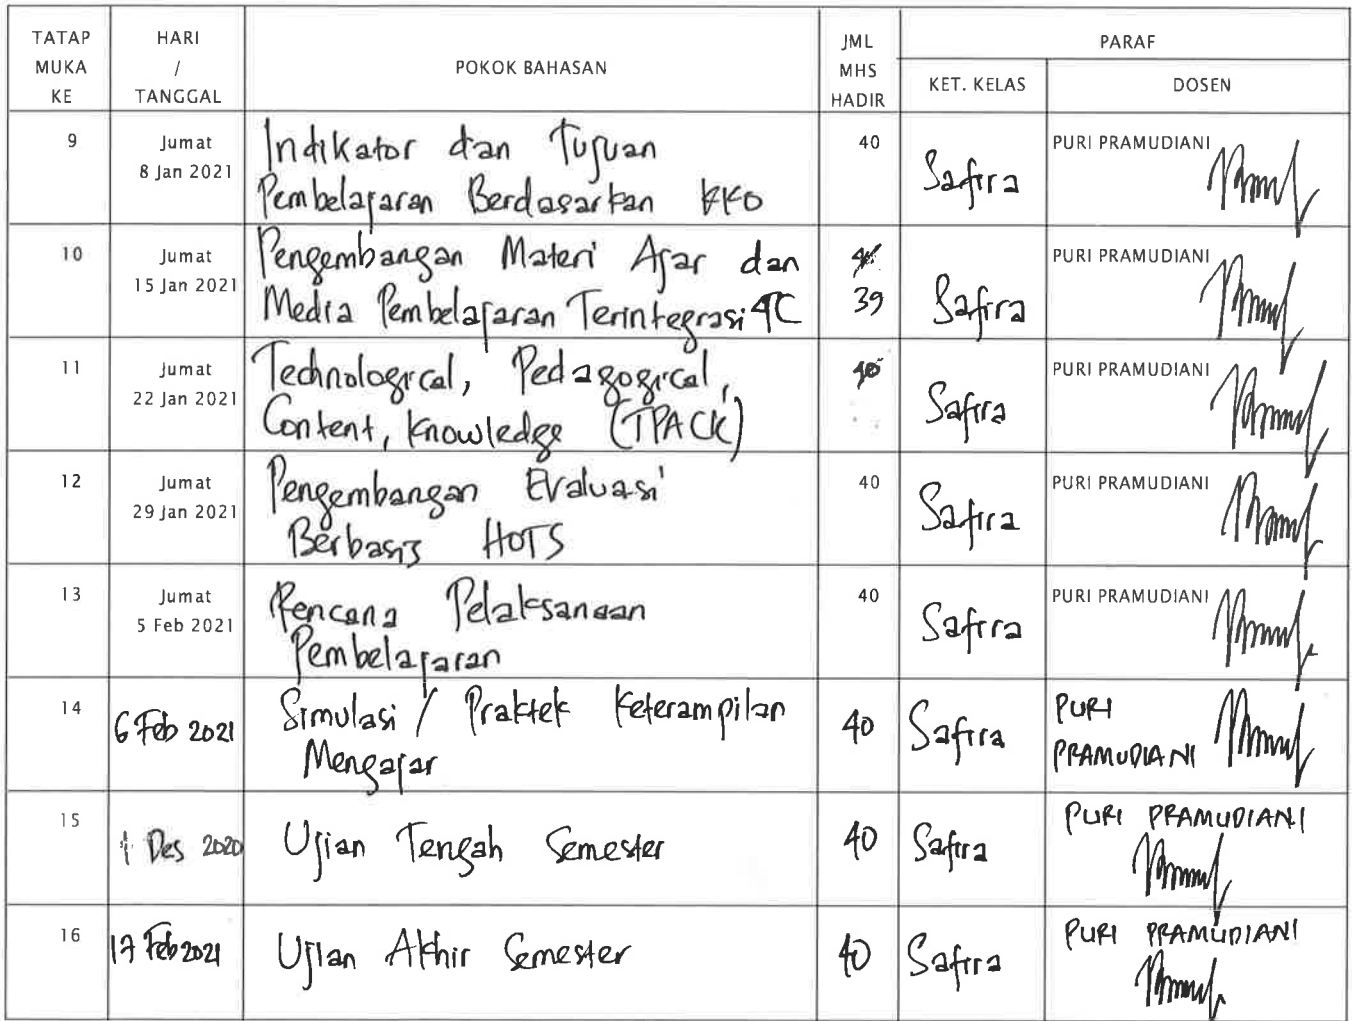 TATAP MUKA KE
HARI / TANGGAL
POKOK BAHASAN
JML MHS HADIR
PARAF
KET. KELAS
DOSEN
9
Jumat
8 Jan 2021
Indikator dan Tujuan
Pembelajaran Berdasarkan KKO
40
Safira
PURI PRAMUDIANI
10
Jumat
15 Jan 2021
Pengembangan Materi Ajar dan
Media Pembelajaran Terintegrasi 4C
39
Safira
PURI PRAMUDIANI
11
Jumat
22 Jan 2021
Technological, Pedagogical,
Content, Knowledge (TPACK)
40
Safira
PURI PRAMUDIANI
12
Jumat
29 Jan 2021
Pengembangan Evaluasi
Berbasis HOTS
40
Safira
PURI PRAMUDIANI
13
Jumat
5 Feb 2021
Rencana Pelaksanaan
Pembelajaran
40
Safira
PURI PRAMUDIANI
14
6 Feb 2021
Simulasi / Praktek Keterampilan
Mengajar
40
Safira
PURI
PRAMUDIANI
15
Des 2020
Ujian Tengah Semester
40
Safira
PURI PRAMUDIANI
16
17 Feb 2021
Ujian Akhir Semester
40
Safira
PURI PRAMUDIANI